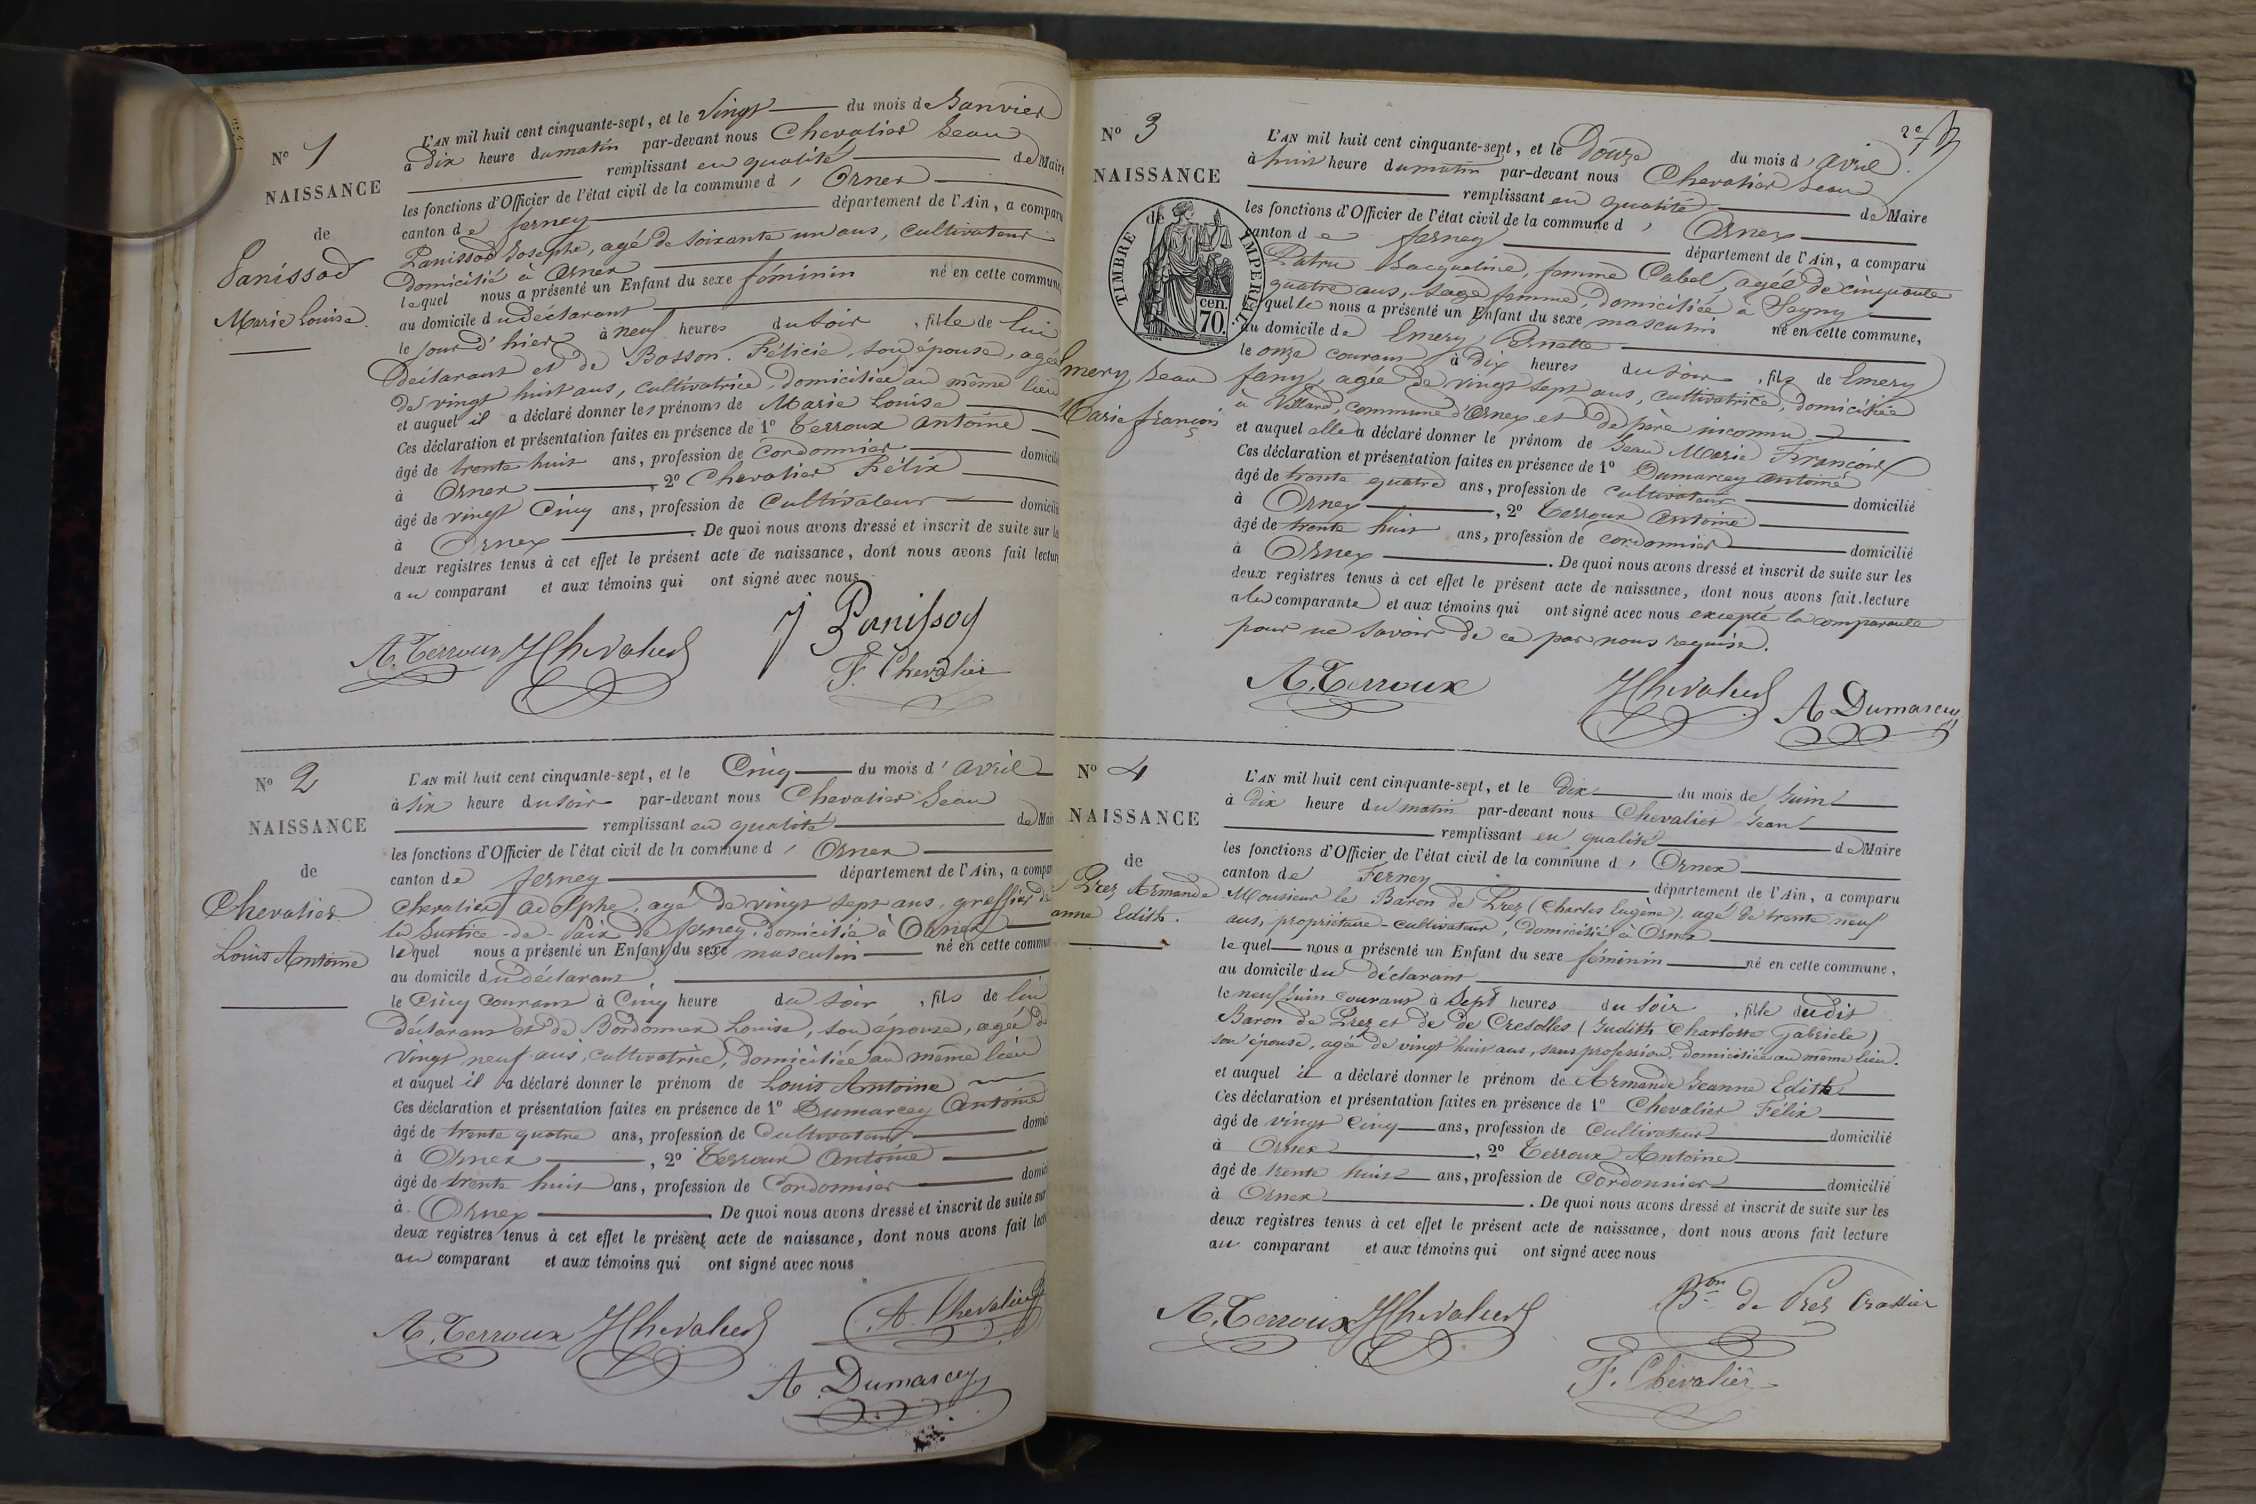 N° 1
NAISSANCE
de
Panissod
Marie Louise.
L'AN mil huit cent cinquante-sept, et le Vingt du mois de Janvier
à Dix heure du matin par-devant nous Chevalier Jean
remplissant en qualité de Maire
les fonctions d'Officier de l'état civil de la commune d' Ornex
canton de ferney département de l'Ain, a comparu
Panissod Josephe, agé de soixante un ans, cultivateur
Domicilié à Ornex
lequel nous a présenté un Enfant du sexe féminin né en cette commune
au domicile du déclarant
le jour d'hier à neuf heures du soir, fille de lui
Déclarant et de Bosson Félicie, son épouse, agée
de vingt huit ans, cultivatrice, domiciliée au même lieu
et auquel il a déclaré donner les prénoms de Marie Louise
Ces déclaration et présentation faites en présence de 1° Terroux Antoine
âgé de trente huit ans, profession de Cordonnier domicilié
à Ornex, 2° Chevalier Félix
âgé de vingt Cinq ans, profession de Cultivateur domicilié
à Ornex. De quoi nous avons dressé et inscrit de suite sur les
deux registres tenus à cet effet le présent acte de naissance, dont nous avons fait lecture
au comparant et aux témoins qui ont signé avec nous
A. Terroux JChevalier J Panissod
F. Chevalier
N° 2
NAISSANCE
de
Chevalier
Louis Antoine
L'AN mil huit cent cinquante-sept, et le Cinq du mois d'avril
à six heure du soir par-devant nous Chevalier Jean
remplissant en qualité de Maire
les fonctions d'Officier de l'état civil de la commune d' Ornex
canton de ferney département de l'Ain, a comparu
Chevalier Adolphe, agé de vingt sept ans, greffier de
la Justice-de-Paix de ferney, domicilié à Ornex
lequel nous a présenté un Enfant du sexe masculin né en cette commune
au domicile du déclarant
le Cinq courant à Cinq heure du soir, fils de lui
déclarant et de Bordonnex Louise, son épouse, agée de
vingt neuf ans, cultivatrice, domiciliée au même lieu
et auquel il a déclaré donner le prénom de Louis Antoine
Ces déclaration et présentation faites en présence de 1° Dumarcey Antoine
âgé de trente quatre ans, profession de Cultivateur domicilié
à Ornex, 2° Terroux Antoine
âgé de trente huit ans, profession de Cordonnier domicilié
à Ornex. De quoi nous avons dressé et inscrit de suite sur
deux registres tenus à cet effet le présent acte de naissance, dont nous avons fait lecture
au comparant et aux témoins qui ont signé avec nous
A. Terroux JChevalier A. Chevalier
A. Dumarcey
2e
N° 3
NAISSANCE
de
TIMBRE IMPERIAL
70 cen.
Emery Jean
Marie françois
L'AN mil huit cent cinquante-sept, et le Douze du mois d'avril
à huit heure du matin par-devant nous Chevalier Jean
remplissant en qualité de Maire
les fonctions d'Officier de l'état civil de la commune d' Ornex
canton de ferney département de l'Ain, a comparu
Patru Jacqueline, femme Cabel, agée de cinquante
quatre ans, sage femme, domiciliée à Segny
laquelle nous a présenté un Enfant du sexe masculin né en cette commune,
au domicile de Emery Pernette
le onze courant à dix heures du soir, fils de Emery
fany, agée de vingt sept ans, cultivatrice, domiciliée
à Villard, commune d'Ornex et de père inconnu
et auquel elle a déclaré donner le prénom de Jean Marie François
Ces déclaration et présentation faites en présence de 1° Dumarcey Antoine
âgé de trente quatre ans, profession de cultivateur domicilié
à Ornex, 2° Terroux Antoine
âgé de trente huit ans, profession de cordonnier domicilié
à Ornex. De quoi nous avons dressé et inscrit de suite sur les
deux registres tenus à cet effet le présent acte de naissance, dont nous avons fait lecture
à la comparante et aux témoins qui ont signé avec nous excepté la comparante
pour ne savoir de ce par nous requise.
A. Terroux JChevalier A Dumarcey
N° 4
NAISSANCE
de
Prez Armande
anne Edith.
L'AN mil huit cent cinquante-sept, et le Dix du mois de Juin
à Dix heure du matin par-devant nous Chevalier Jean
remplissant en qualité de Maire
les fonctions d'Officier de l'état civil de la commune d' Ornex
canton de Ferney département de l'Ain, a comparu
Monsieur le Baron de Prez (Charles Eugène), agé de trente neuf
ans, propriétaire-cultivateur, domicilié à Ornex
lequel nous a présenté un Enfant du sexe féminin né en cette commune,
au domicile du déclarant
le neuf Juin courant à Sept heures du soir, fille dudit
Baron de Prez et de de Cresolles (Judith Charlotte Gabriele)
son épouse, agée de vingt huit ans, sans profession, domiciliée au même lieu.
et auquel il a déclaré donner le prénom de Armande Jeanne Edith
Ces déclaration et présentation faites en présence de 1° Chevalier Félix
âgé de vingt Cinq ans, profession de Cultivateur domicilié
à Ornex, 2° Terroux Antoine
âgé de trente huit ans, profession de Cordonnier domicilié
à Ornex. De quoi nous avons dressé et inscrit de suite sur les
deux registres tenus à cet effet le présent acte de naissance, dont nous avons fait lecture
au comparant et aux témoins qui ont signé avec nous
A. Terroux JChevalier Bon de Prez Crassier
F. Chevalier